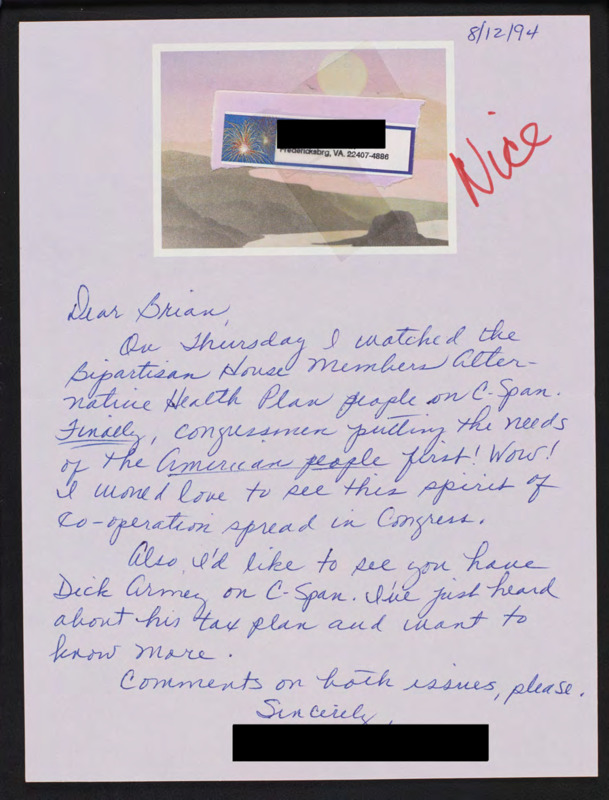 8/12/94
Fredericksbrg, VA. 22407-4886
Nice
Dear Brian,
On Thursday I watched the
Bipartisan House Members Alter-
native Health Plan people on C-Span.
Finally, congressmen putting the needs
of the American people first! Wow!
I would love to see this spirit of
co-operation spread in Congress.
Also, I'd like to see you have
Dick Armey on C-Span. I've just heard
about his tax plan and want to
know more.
Comments on both issues, please.
Sincerely,